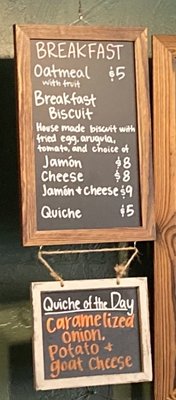 BREAKFAST
Oatmeal $5
with fruit
Breakfast
Biscuit
House made biscuit with
fried egg, arugula,
tomato, and choice of
Jamón $8
Cheese $8
Jamón + Cheese $9
Quiche $5
Quiche of the Day
Caramelized
onion.
Potato +
goat cheese